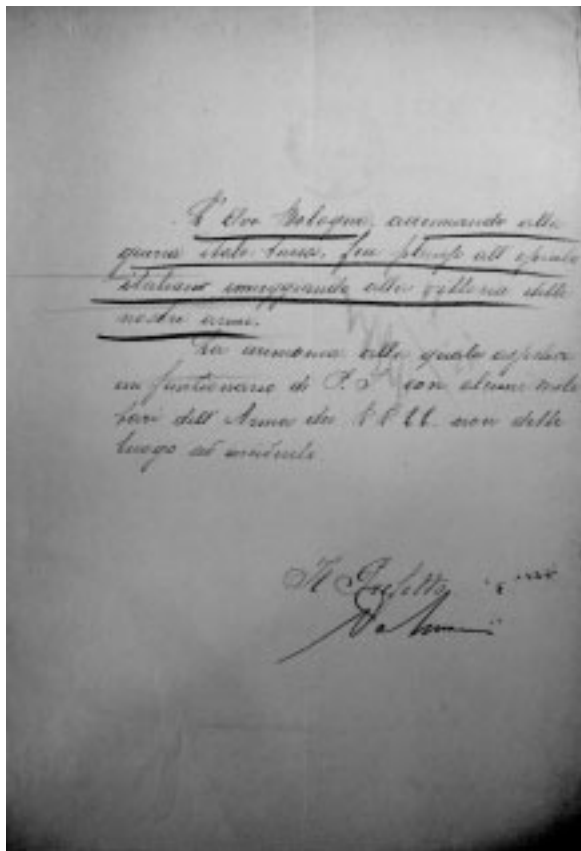 L'Avv Bologna, accennando alla
guerra italo-turca, fece plauso all'esercito
italiano inneggiando alla vittoria delle
nostre armi.
La cerimonia alla quale assisteva
un funzionario di P. S. con alcuni mili
tari dell'Arma dei RR CC. non dette
luogo ad incidenti.
Il Prefetto